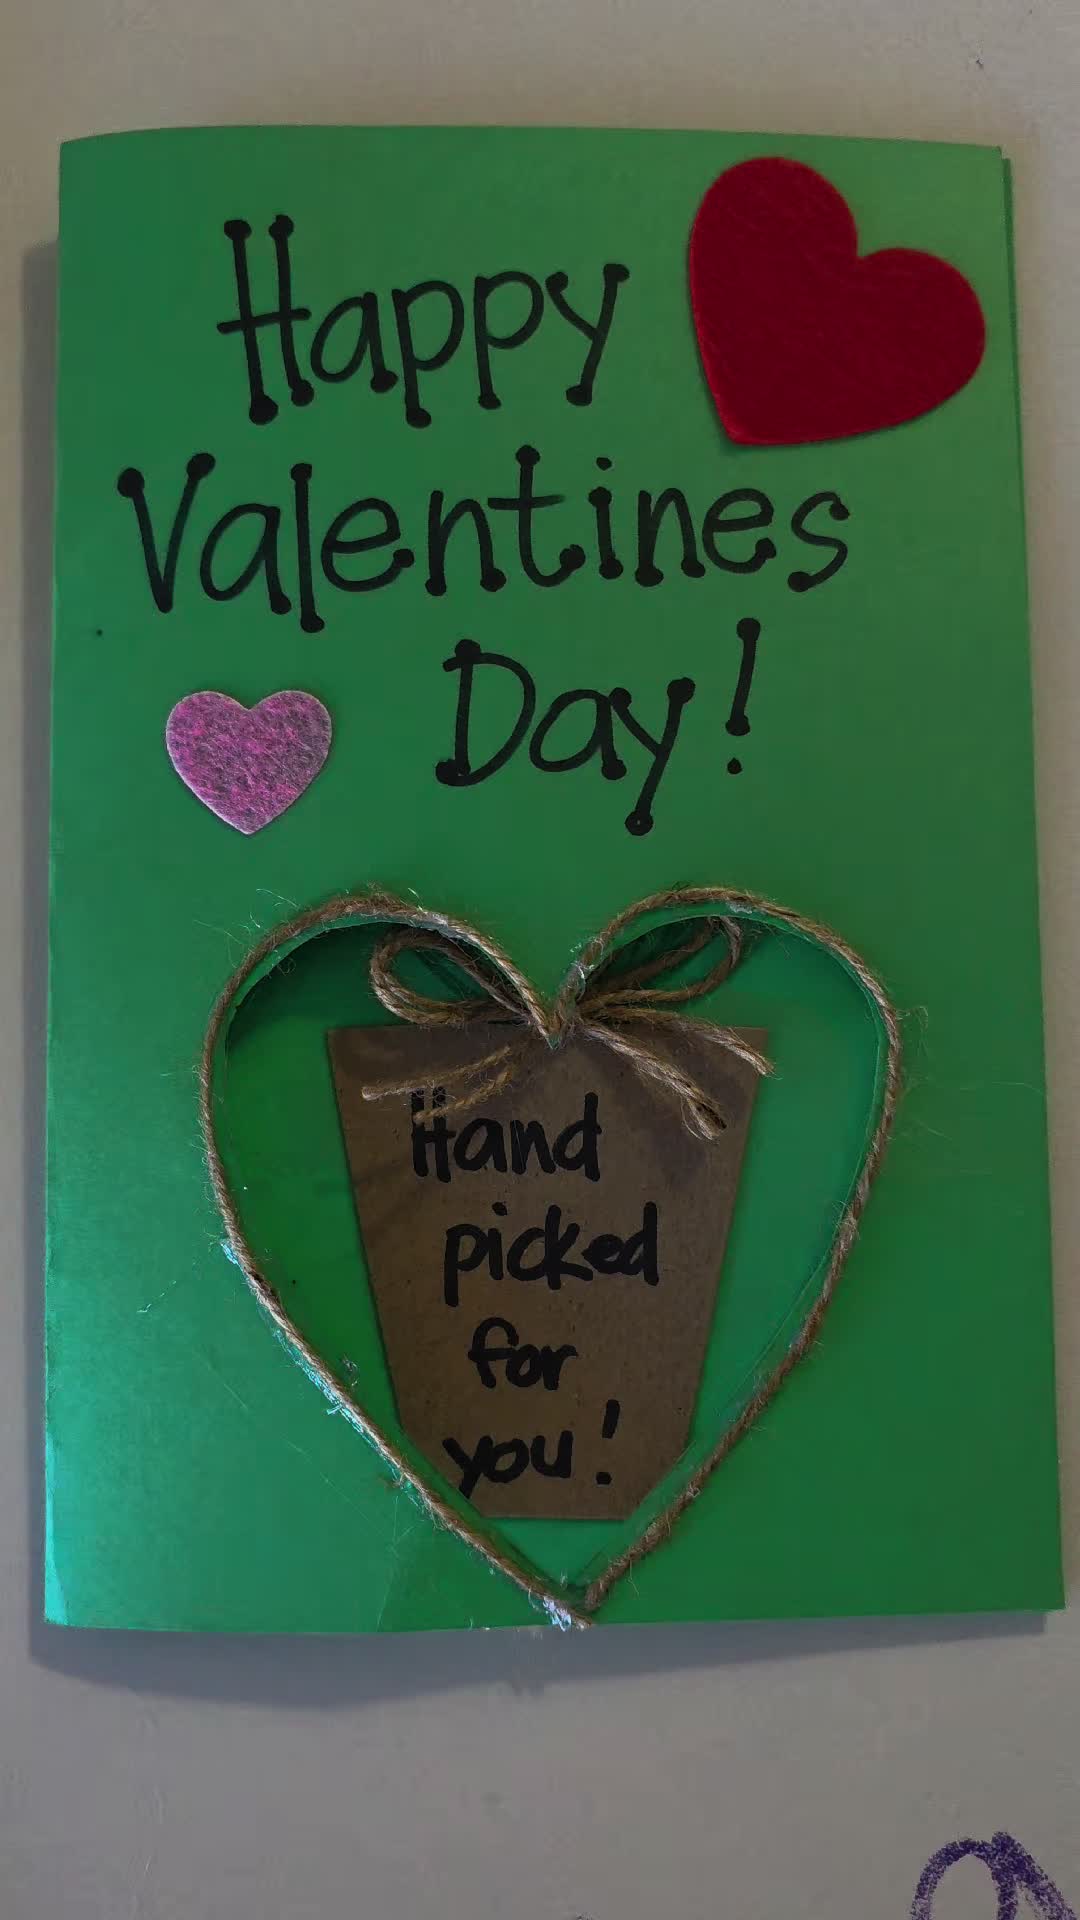 Happy
Valentines
Day!
Hand
picked
for
you!